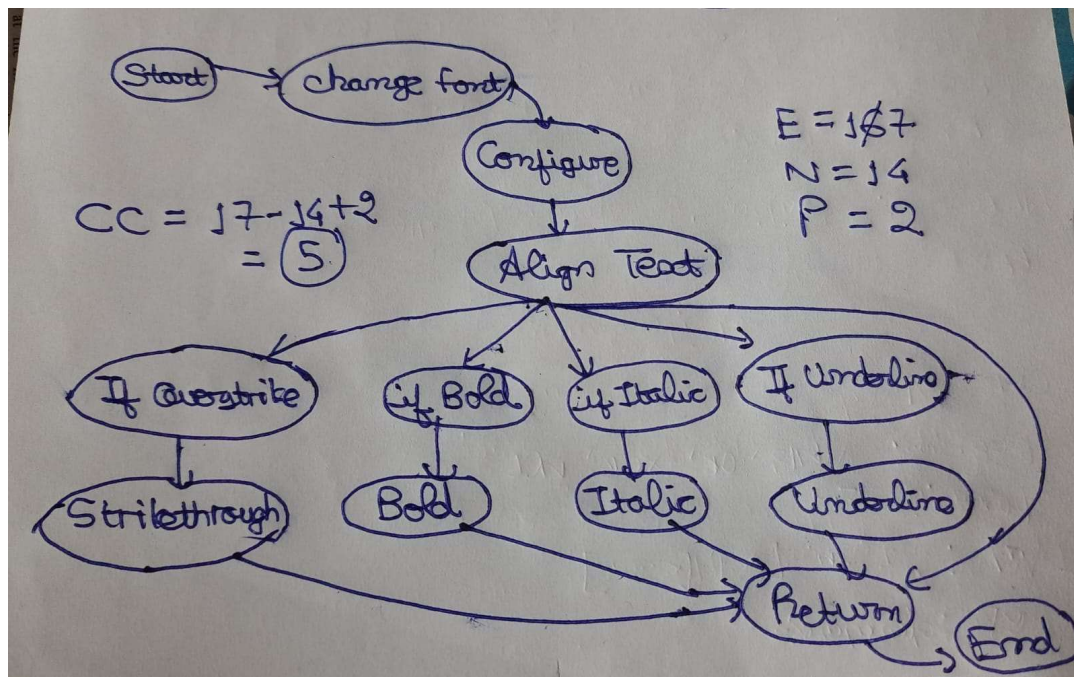 Start
change font
Configure
E = 167
N = 14
P = 2
CC = 17-14+2
= 5
Align Text
If Overstrike
if Bold
if Italic
If Underline
Strikethrough
Bold
Italic
Underline
Return
End